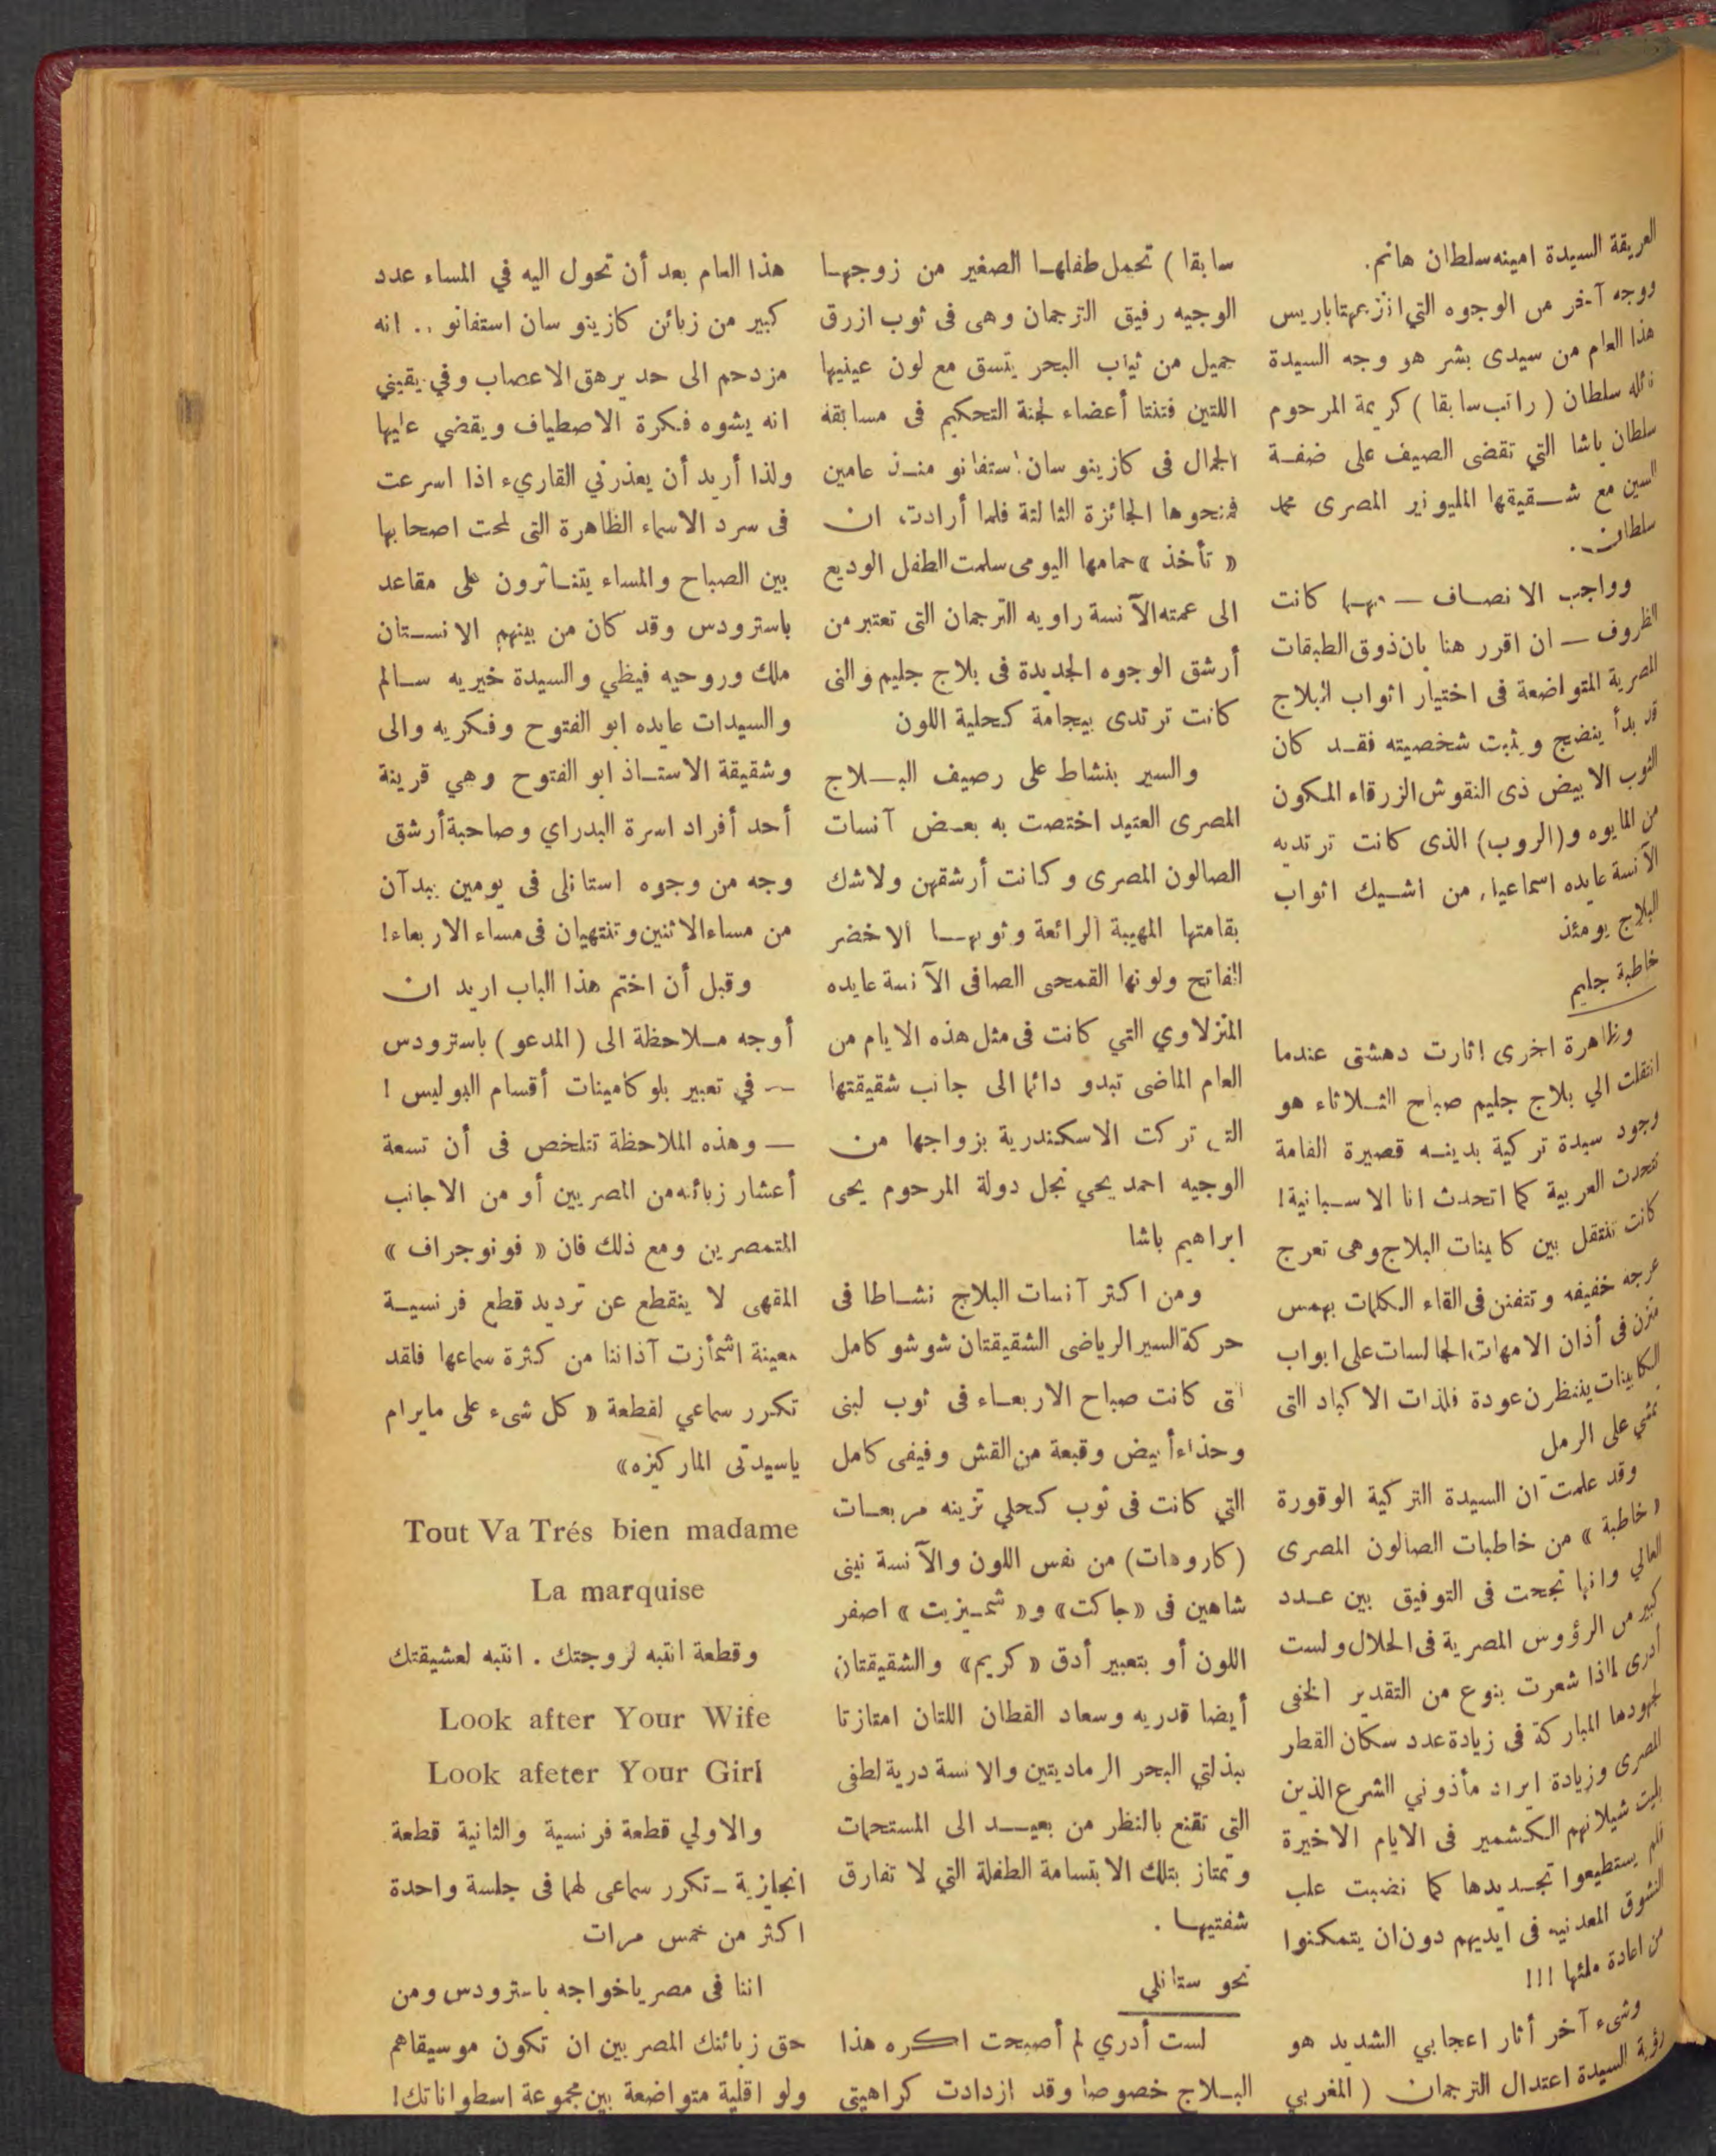 العريقة السيدة امينه سلطان هانم.
ووجه آخر من الوجوه التي انتزعتها باريس
هذا العام من سيدى بشر هو وجه السيدة
سلطان ( راتب سابقا ) كريمة المرحوم
سلطان باشا التي تقضى الصيف على ضفة
السين مع شقيقها المليونير المصرى محمد
سلطان .
وواجب الانصاف — مهما كانت
الظروف — ان اقرر هنا بان ذوق الطبقات
المصرية المتواضعة فى اختيار اثواب البلاج
قد بدأ ينضج ويثبت شخصيته فقد كان
الثوب الابيض ذى النقوش الزرقاء المكون
من المايوه و(الروب) الذى كانت ترتديه
الآنسة عايده اسماعيل من اشيك اثواب
البلاج يومئذ
خاطبة جليم
وظاهرة اخرى اثارت دهشتى عندما
انتقلت الي بلاج جليم صباح الثلاثاء هو
وجود سيدة تركية بدينه قصيرة القامة
تتحدث العربية كما اتحدث انا الاسبانية!
كانت تتنقل بين كابينات البلاج وهى تعرج
عرجه خفيفه وتتفنن فى القاء الكلمات بهمس
متزن فى أذان الامهات الجالسات على ابواب
الكابينات ينتظرن عودة فلذات الاكباد التى
تمشي على الرمل
وقد علمت ان السيدة التركية الوقورة
« خاطبة » من خاطبات الصالون المصرى
العالي وانها نجحت فى التوفيق بين عدد
كبير من الرؤوس المصرية فى الحلال ولست
أدرى لماذا شعرت بنوع من التقدير الخفى
لجهودها المباركة فى زيادة عدد سكان القطر
المصرى وزيادة ايراد مأذوني الشرع الذين
بليت شيلانهم الكشمير فى الايام الاخيرة
فلم يستطيعوا تجديدها كما نضبت علب
النشوق المعدنيه فى ايديهم دون ان يتمكنوا
من اعادة ملئها !!!
وشىء آخر أثار اعجابي الشديد هو
رؤية السيدة اعتدال الترجمان ( المغربي
سابقا ) تحمل طفلها الصغير من زوجها
الوجيه رفيق الترجمان وهى فى ثوب ازرق
جميل من ثياب البحر يتسق مع لون عينيها
اللتين فتنتا أعضاء لجنة التحكيم فى مسابقة
الجمال فى كازينو سان استفانو منذ عامين
فمنحوها الجائزة الثالثة فلما أرادت ان
« تأخذ » حمامها اليومى سلمت الطفل الوديع
الى عمته الآنسة راويه الترجمان التى تعتبر من
أرشق الوجوه الجديدة فى بلاج جليم والتى
كانت ترتدى بيجامة كحلية اللون
والسير بنشاط على رصيف البلاج
المصرى العتيد اختصت به بعض آنسات
الصالون المصرى وكانت أرشقهن ولاشك
بقامتها المهيبة الرائعة وثوبها الاخضر
الفاتح ولونها القمحى الصافى الآنسة عايده
المنزلاوي التي كانت فى مثل هذه الايام من
العام الماضى تبدو دائما الى جانب شقيقتها
التى تركت الاسكندرية بزواجها من
الوجيه احمد يحي نجل دولة المرحوم يحى
ابراهيم باشا
ومن اكثر آنسات البلاج نشاطا فى
حركة السير الرياضى الشقيقتان شوشو كامل
التى كانت صباح الاربعاء فى ثوب لبنى
وحذاء أبيض وقبعة من القش وفيفى كامل
التي كانت فى ثوب كحلي تزينه مربعات
(كاروهات) من نفس اللون والآنسة نينى
شاهين فى «جاكت» و« شميزيت » اصفر
اللون أو بتعبير أدق « كريم» والشقيقتان
أيضا قدريه وسعاد القطان اللتان امتازتا
ببذلتي البحر الرماديتين والانسة درية لطفى
التى تقنع بالنظر من بعيد الى المستحمات
وتمتاز بتلك الابتسامة الطفلة التي لا تفارق
شفتيها .
نحو ستانلي
لست أدري لم أصبحت اكره هذا
البلاج خصوصا وقد ازدادت كراهيتى
هذا العام بعد أن تحول اليه في المساء عدد
كبير من زبائن كازينو سان استفانو .. انه
مزدحم الى حد يرهق الاعصاب وفي يقيني
انه يشوه فكرة الاصطياف ويقضي عليها
ولذا أريد أن يعذرني القاريء اذا اسرعت
فى سرد الاسماء الظاهرة التى لمحت اصحابها
بين الصباح والمساء يتناثرون على مقاعد
باسترودس وقد كان من بينهم الانستان
ملك وروحيه فيظي والسيدة خيريه سالم
والسيدات عايده ابو الفتوح وفكريه والى
وشقيقة الاستاذ ابو الفتوح وهي قرينة
أحد أفراد اسرة البدراي وصاحبة أرشق
وجه من وجوه استانلى فى يومين يبدآن
من مساء الاثنين وتنتهيان فى مساء الاربعاء!
وقبل أن اختم هذا الباب اريد ان
أوجه ملاحظة الى ( المدعو ) باسترودس
— في تعبير بلوكامينات أقسام البوليس !
— وهذه الملاحظة تتلخص فى أن تسعة
أعشار زبائنه من المصريين أو من الاجانب
المتمصرين ومع ذلك فان « فونوجراف »
المقهى لا ينقطع عن ترديد قطع فرنسية
معينة اشمأزت آذاننا من كثرة سماعها فلقد
تكرر سماعي لقطعة « كل شىء على مايرام
ياسيدتى الماركيزه»
Tout Va Trés bien madame
La marquise
وقطعة انتبه لزوجتك . انتبه لعشيقتك
Look after Your Wife
Look afeter Your Girl
والاولي قطعة فرنسية والثانية قطعة
انجليزية — تكرر سماعى لهما فى جلسة واحدة
اكثر من خمس مرات
اننا فى مصر ياخواجه باسترودس ومن
حق زبائنك المصريين ان تكون موسيقاهم
ولو اقلية متواضعة بين مجموعة اسطواناتك!